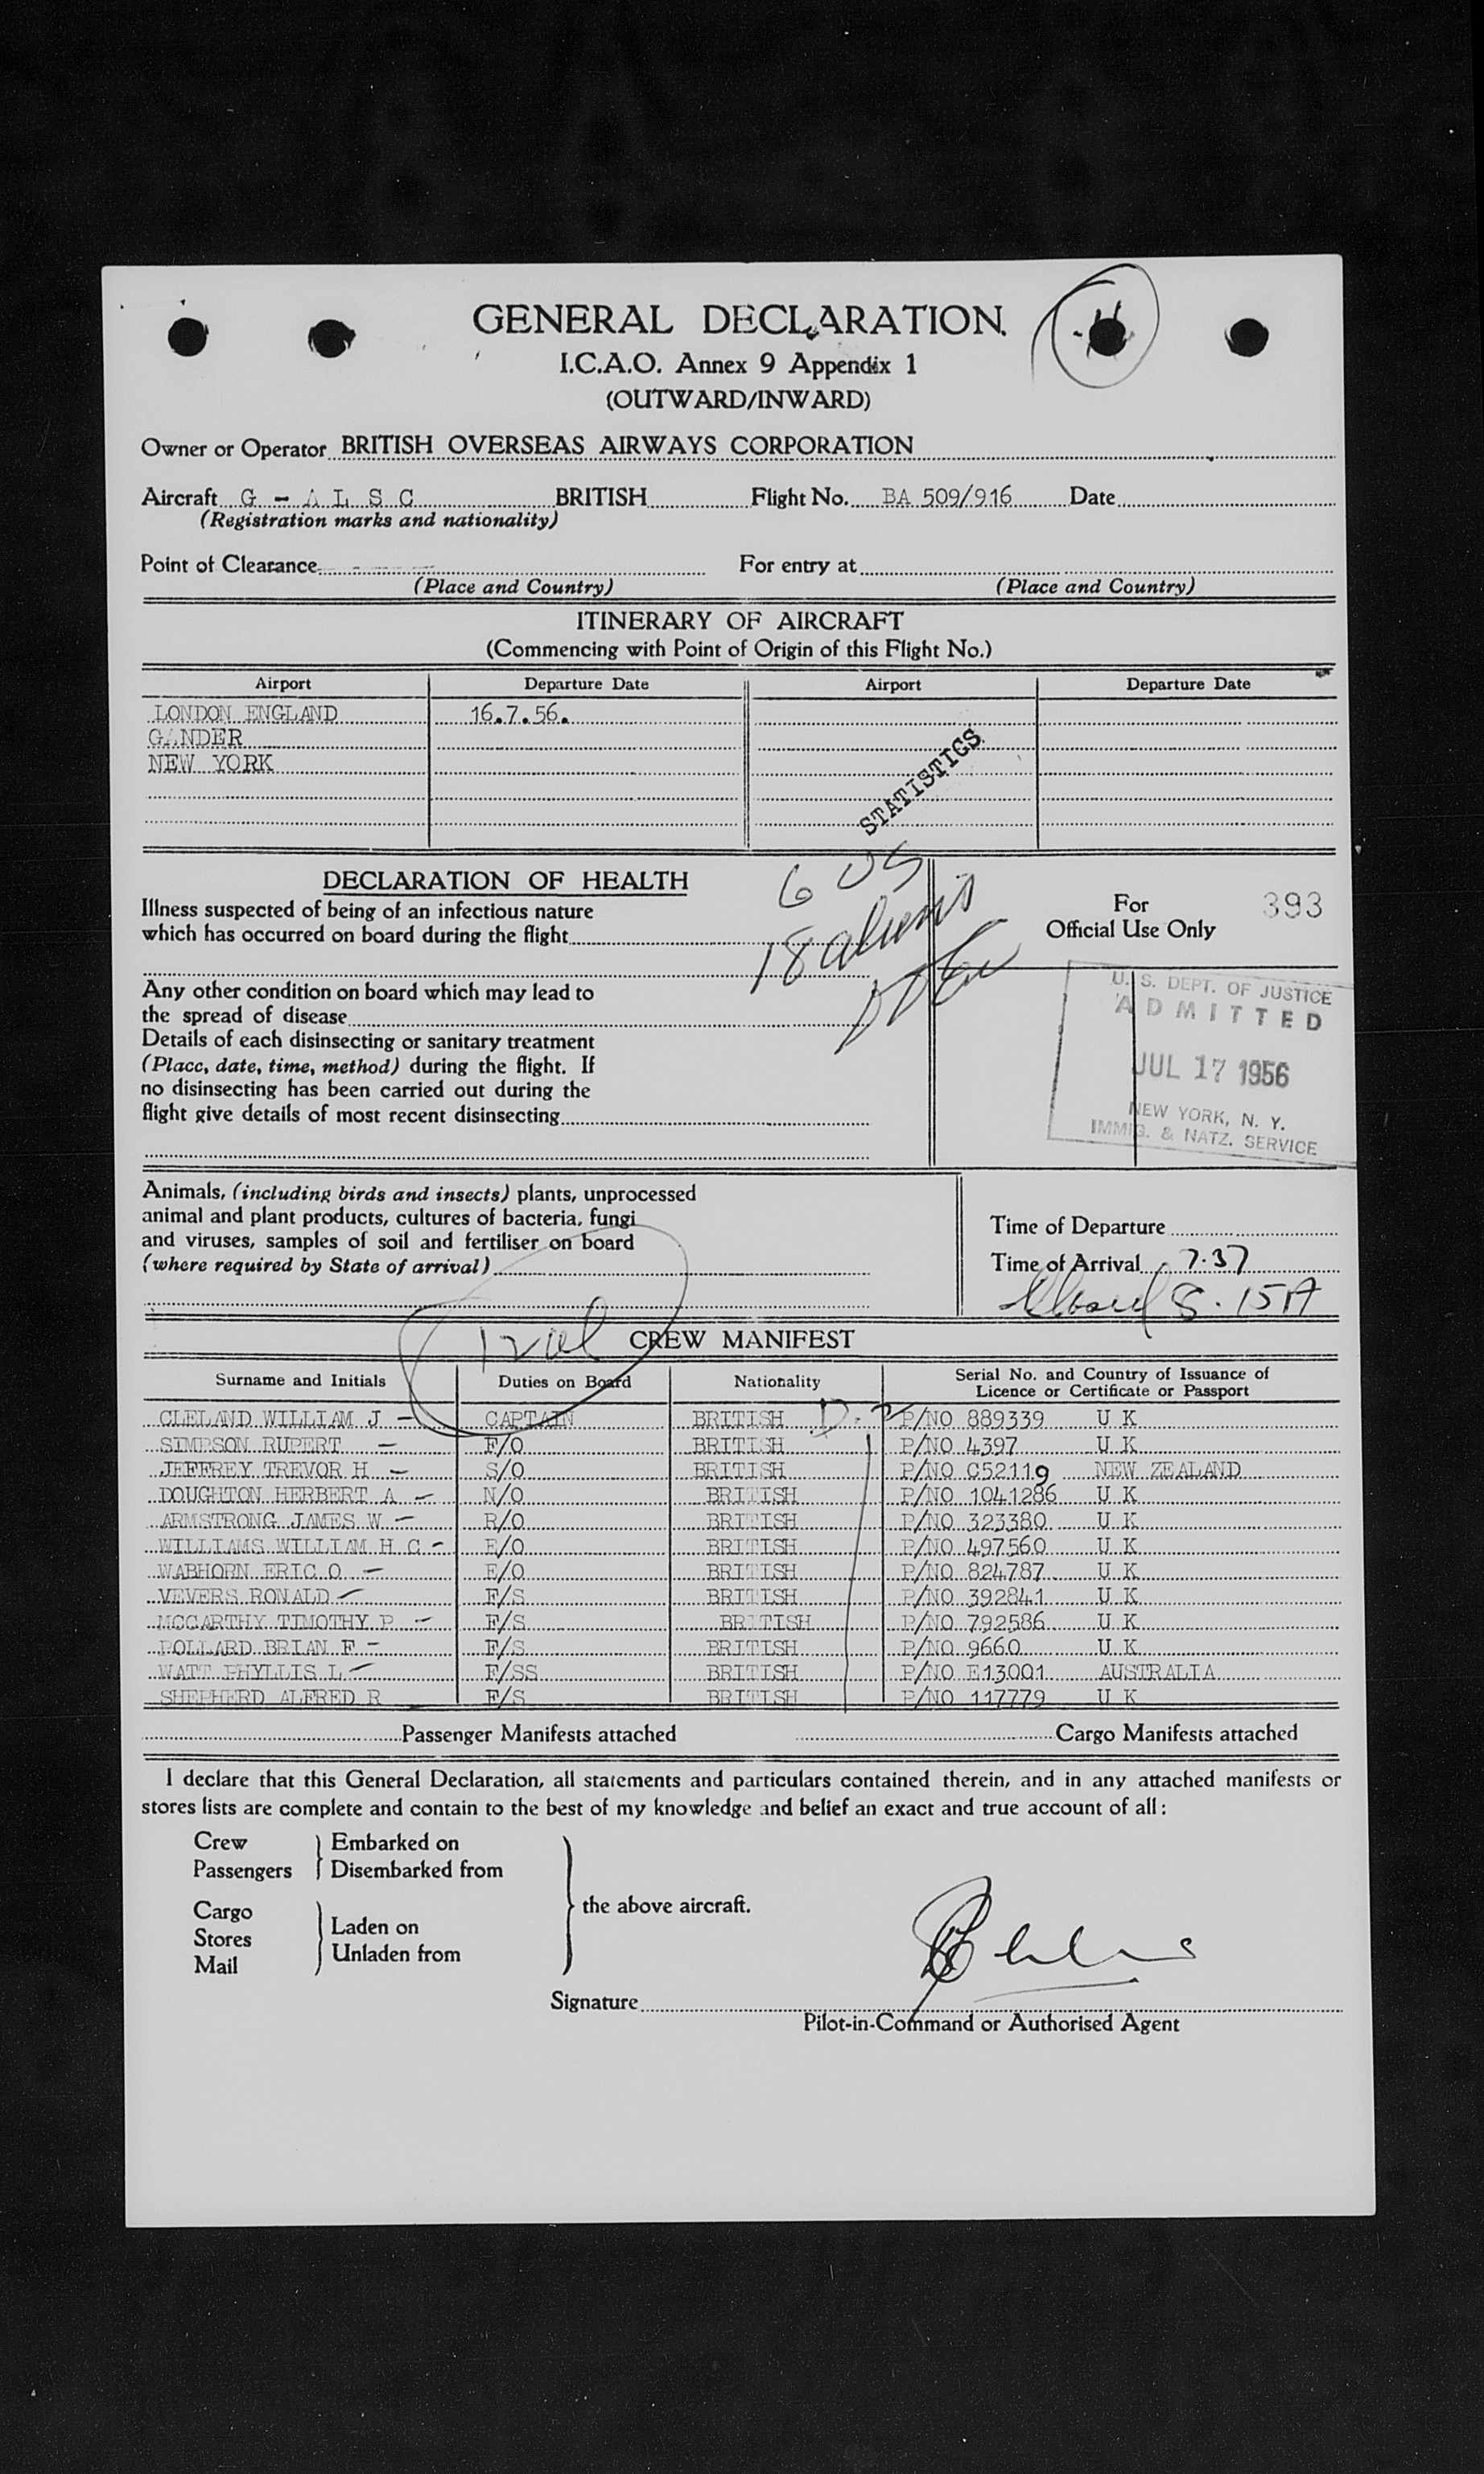 GENERAL DECLARATION
I.C.A.O. Annex 9 Appendix 1
(OUTWARD/INWARD)
Owner or Operator BRITISH OVERSEAS AIRWAYS CORPORATION
Aircraft G - A L S C BRITISH Flight No. BA 509/916 Date
(Registration marks and nationality)
Point of Clearance For entry at
(Place and Country) (Place and Country)
ITINERARY OF AIRCRAFT
(Commencing with Point of Origin of this Flight No.)
Airport Departure Date Airport Departure Date
LONDON ENGLAND 16.7.56.
GANDER
NEW YORK
STATISTICS
6 US
18 aliens
DECLARATION OF HEALTH
Illness suspected of being of an infectious nature
which has occurred on board during the flight
Any other condition on board which may lead to
the spread of disease
Details of each disinsecting or sanitary treatment
(Place, date, time, method) during the flight. If
no disinsecting has been carried out during the
flight give details of most recent disinsecting
For 393
Official Use Only
U. S. DEPT. OF JUSTICE
ADMITTED
JUL 17 1956
NEW YORK, N. Y.
IMMIG. & NATZ. SERVICE
Animals, (including birds and insects) plants, unprocessed
animal and plant products, cultures of bacteria, fungi
and viruses, samples of soil and fertiliser on board
(where required by State of arrival)
Time of Departure
Time of Arrival 7.37
8.15A
CREW MANIFEST
Surname and Initials Duties on Board Nationality Serial No. and Country of Issuance of
Licence or Certificate or Passport
CLELAND WILLIAM J - CAPTAIN BRITISH P/NO 889339 U K
SIMPSON RUPERT - F/O BRITISH P/NO 4397 U K
JEFFREY TREVOR H - S/O BRITISH P/NO C52119 NEW ZEALAND
DOUGHTON HERBERT A - N/O BRITISH P/NO 1041286 U K
ARMSTRONG JAMES W - R/O BRITISH P/NO 323380 U K
WILLIAMS WILLIAM H C - E/O BRITISH P/NO 497560 U K
WABHORN ERIC O - E/O BRITISH P/NO 824787 U K
VEVERS RONALD - F/S BRITISH P/NO 392841 U K
MCCARTHY TIMOTHY P - F/S BRITISH P/NO 792586 U K
POLLARD BRIAN F - F/S BRITISH P/NO 9660 U K
WATT PHYLLIS L - F/SS BRITISH P/NO E13001 AUSTRALIA
SHEPHERD ALFRED R F/S BRITISH P/NO 117779 U K
Passenger Manifests attached Cargo Manifests attached
I declare that this General Declaration, all statements and particulars contained therein, and in any attached manifests or
stores lists are complete and contain to the best of my knowledge and belief an exact and true account of all:
Crew Embarked on
Passengers Disembarked from
the above aircraft.
Cargo
Stores Laden on
Mail Unladen from
Signature
Pilot-in-Command or Authorised Agent